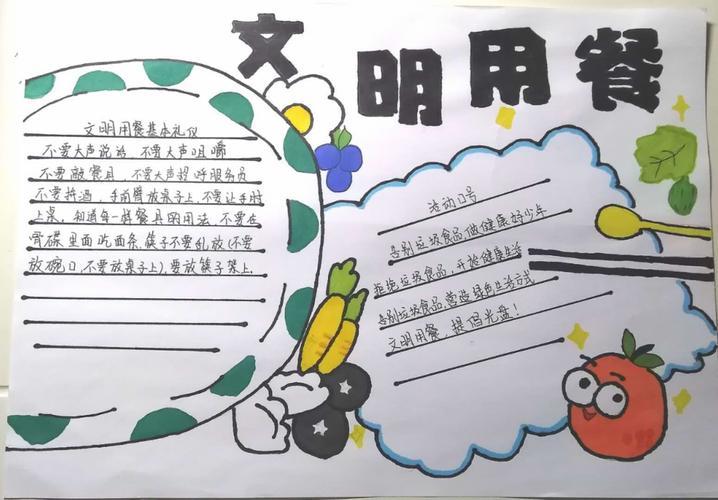 文明用餐
文明用餐基本礼仪
不要大声说话 不要大声咀嚼
不要敲餐具，不要大声招呼服务员
不要拼酒，手肩臂放桌子上，不要让手肘
上桌，知道每一样餐具的用法，不要在
骨碟里面吃面条，筷子不要乱放(不要
放碗口，不要放桌子上)，要放筷子架上.
活动口号
告别垃圾食品，做健康好少年
拒绝垃圾食品，开始健康生活
告别垃圾食品，营造绿色生活方式
文明用餐，提倡光盘！